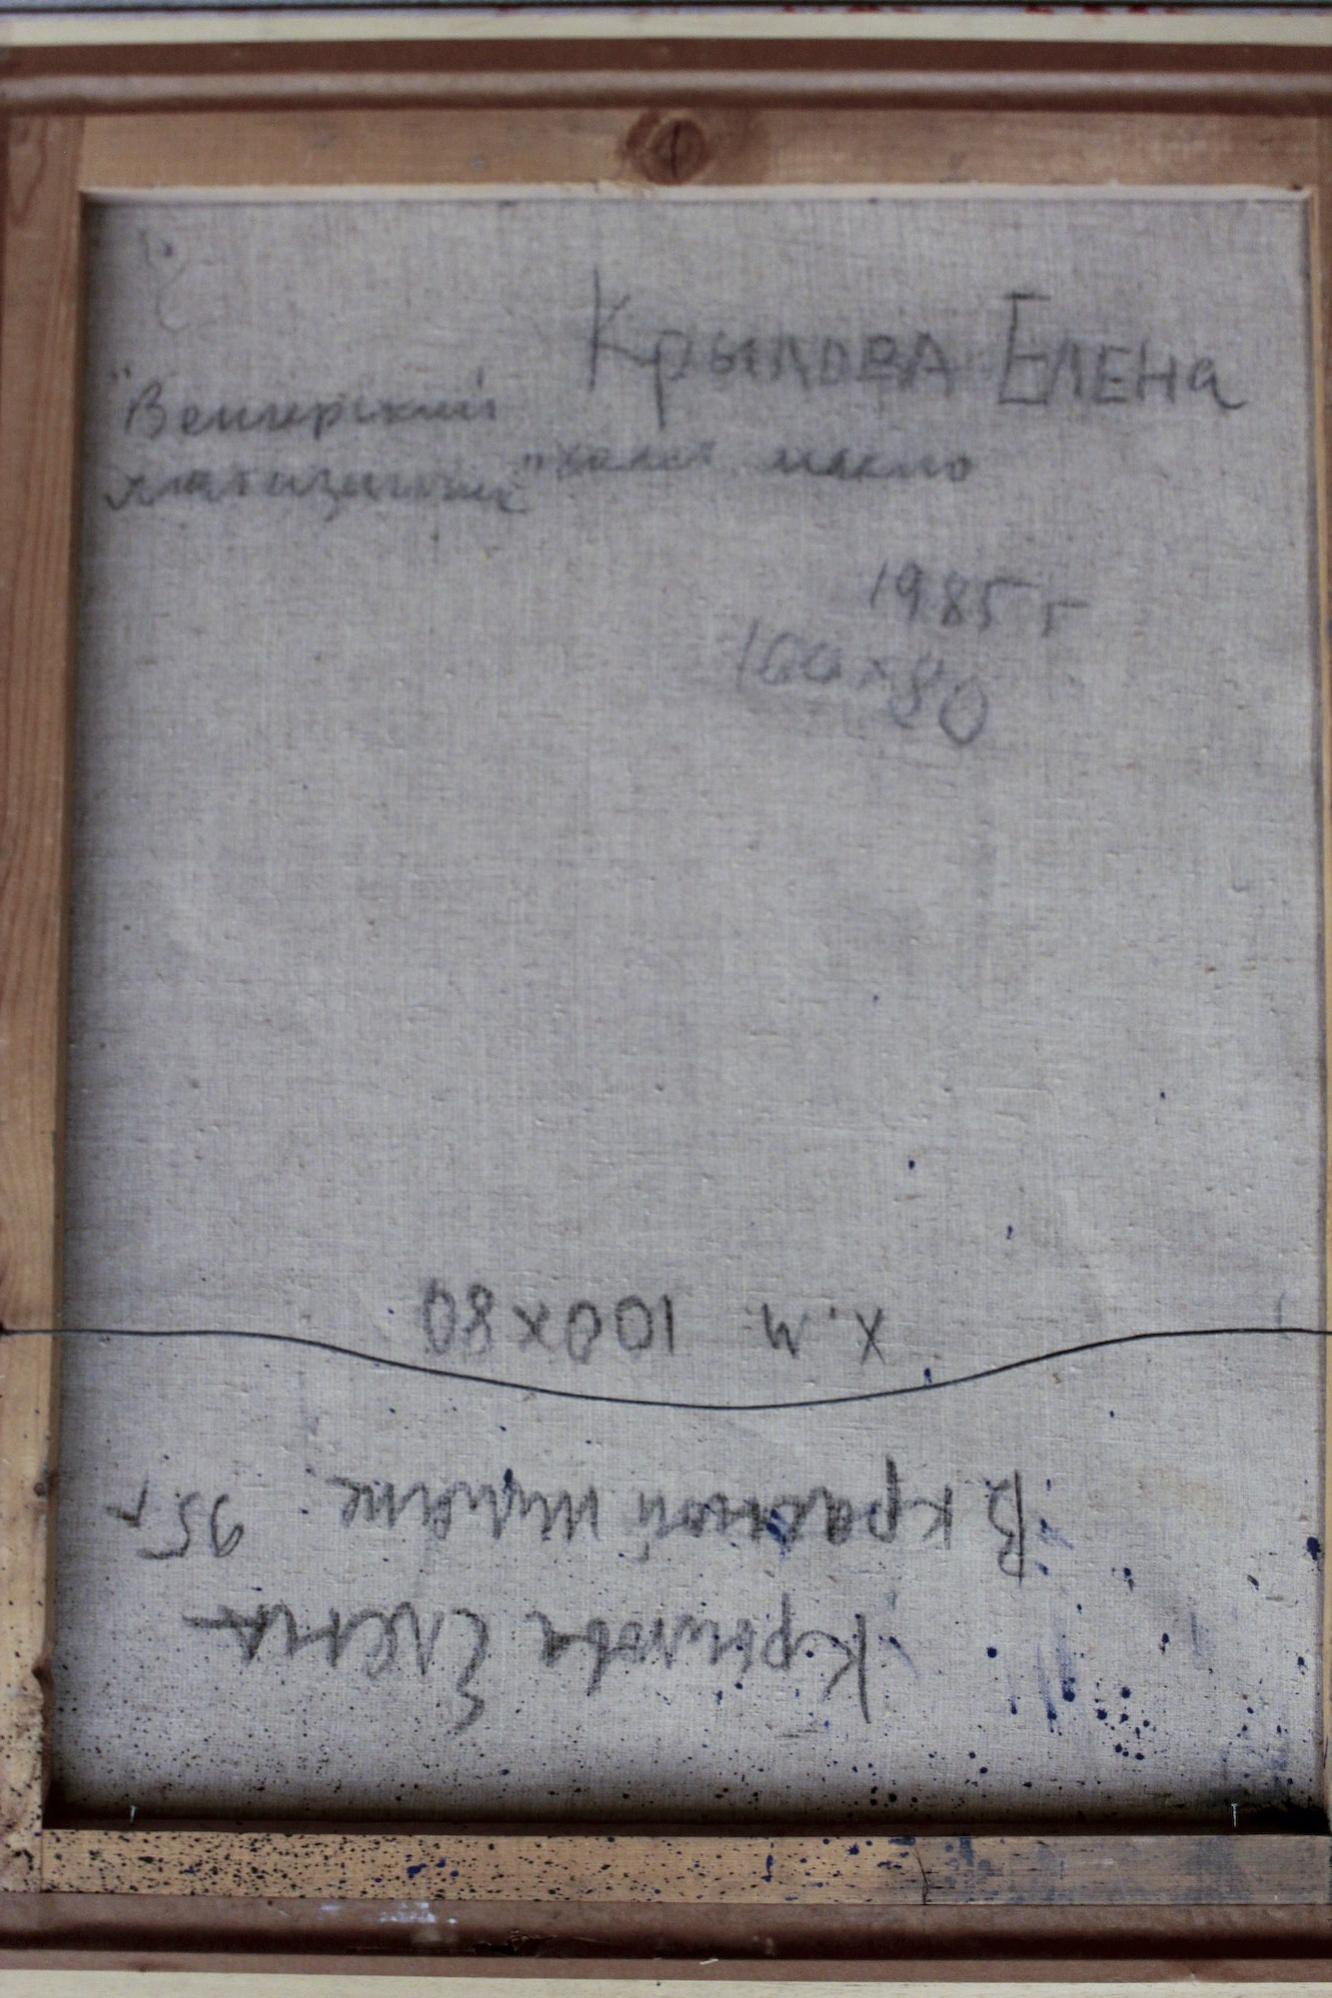 Крылова Елена
"Венгерский
холст масло
1985 г
100×80
Крылова Елена
В красной шляпе. 95 г
х.м 100×80